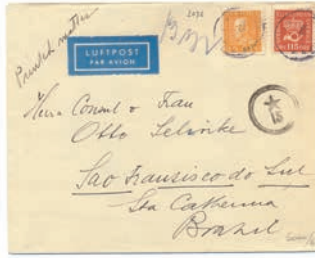 Printed matter
LUFTPOST
PAR AVION
115
Herrn Consul & Frau
Otto Selinke
Sao Fransisco do Sul
Sta Catherina
Brasil